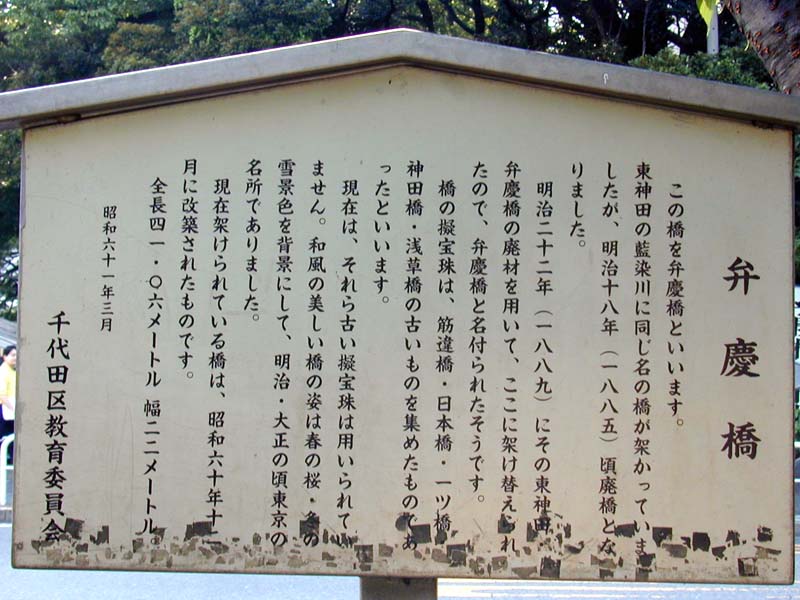 弁慶橋
この橋を弁慶橋といいます。
東神田の藍染川に同じ名の橋が架かっていま
したが、明治十八年（一八八五）頃廃橋とな
りました。
明治二十二年（一八八九）にその東神田
弁慶橋の廃材を用いて、ここに架け替えられ
たので、弁慶橋と名付られたそうです。
橋の擬宝珠は、筋違橋・日本橋・一ツ橋
神田橋・浅草橋の古いものを集めたものであ
ったといいます。
現在は、それら古い擬宝珠は用いられてい
ません。和風の美しい橋の姿は春の桜・冬の
雪景色を背景にして、明治・大正の頃東京の
名所でありました。
現在架けられている橋は、昭和六十年十二
月に改築されたものです。
全長四一・〇六メートル 幅二二メートル。
昭和六十一年三月
千代田区教育委員会